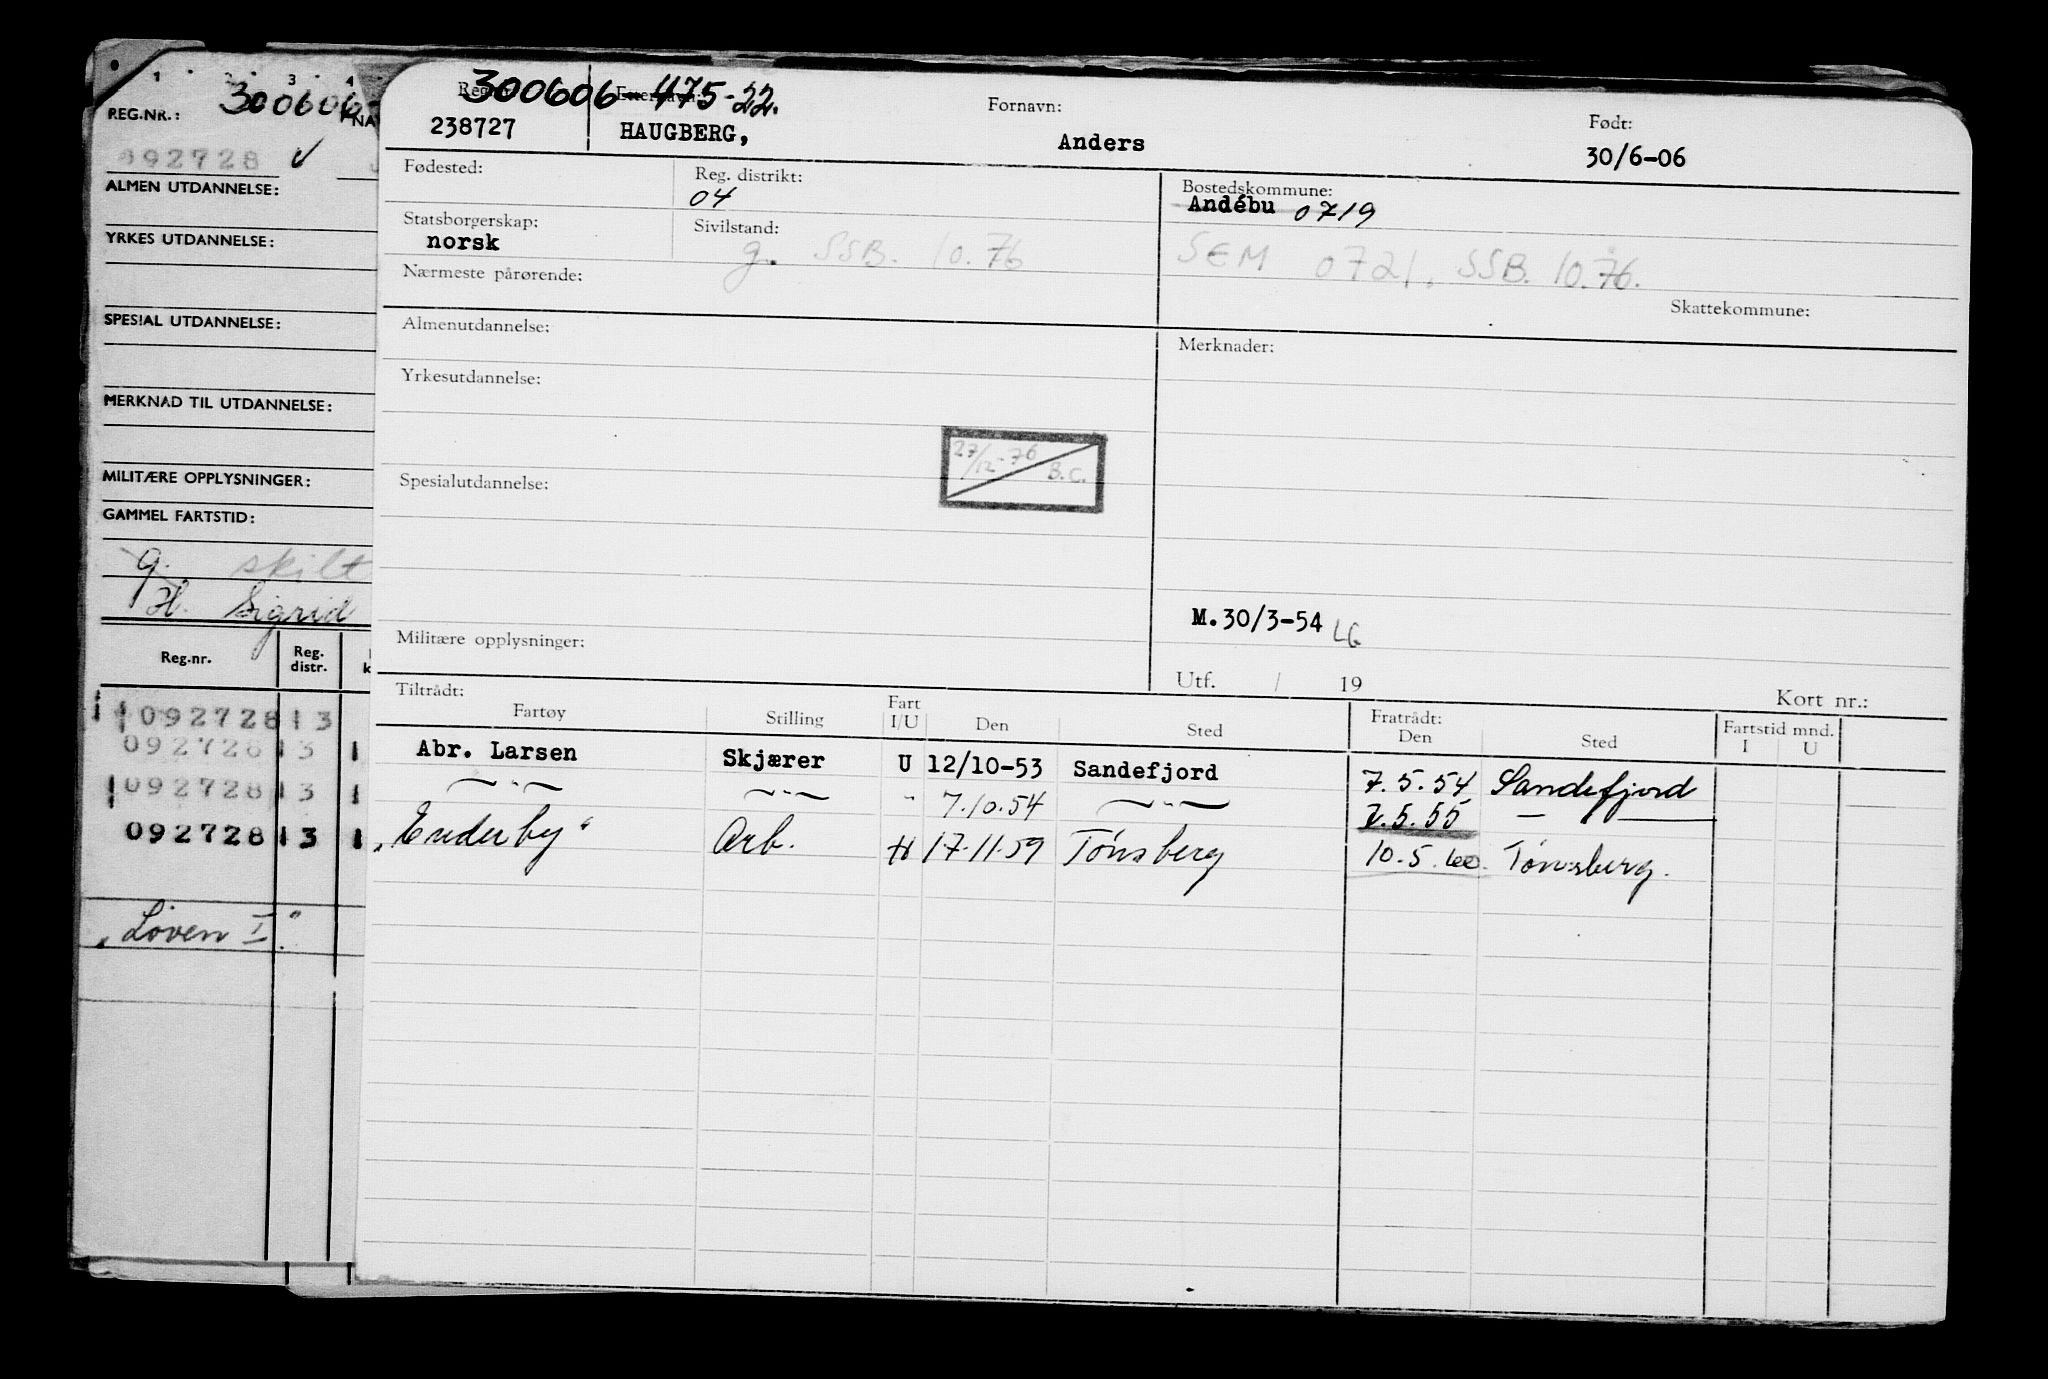 1 2 3 4
REG.NR.: 300606
NA
092728 ✓
ALMEN UTDANNELSE:
YRKES UTDANNELSE:
SPESIAL UTDANNELSE:
MERKNAD TIL UTDANNELSE:
MILITÆRE OPPLYSNINGER:
GAMMEL FARTSTID:
g. skilt
H. Sigrid
Reg.nr. Reg. distr. k
092728 3
092728 3
092728 3
092728 3
"Løven I"
300606 475-22.
Etternavn: Fornavn: Født:
238727 HAUGBERG, Anders 30/6-06
Fødested: Reg. distrikt: Bostedskommune:
04 Andebu 0719
Statsborgerskap: Sivilstand:
norsk g. SSB. 10.76 SEM 0721, SSB. 10.76.
Nærmeste pårørende: Skattekommune:
Almenutdannelse: Merknader:
Yrkesutdannelse:
27/12-76 B.C.
Spesialutdannelse:
M.30/3-54 LG
Militære opplysninger:
Utf. / 19 Kort nr.:
Tiltrådt: Fratrådt: Fartstid mnd.
Fartøy Stilling Fart I/U Den Sted Den Sted I U
Abr. Larsen Skjærer U 12/10-53 Sandefjord 7.5.54 Sandefjord
—"— —"— " 7.10.54 —"— 7.5.55 — —
"Enderby" Arb. H 17.11.59 Tønsberg 10.5.60. Tønsberg.